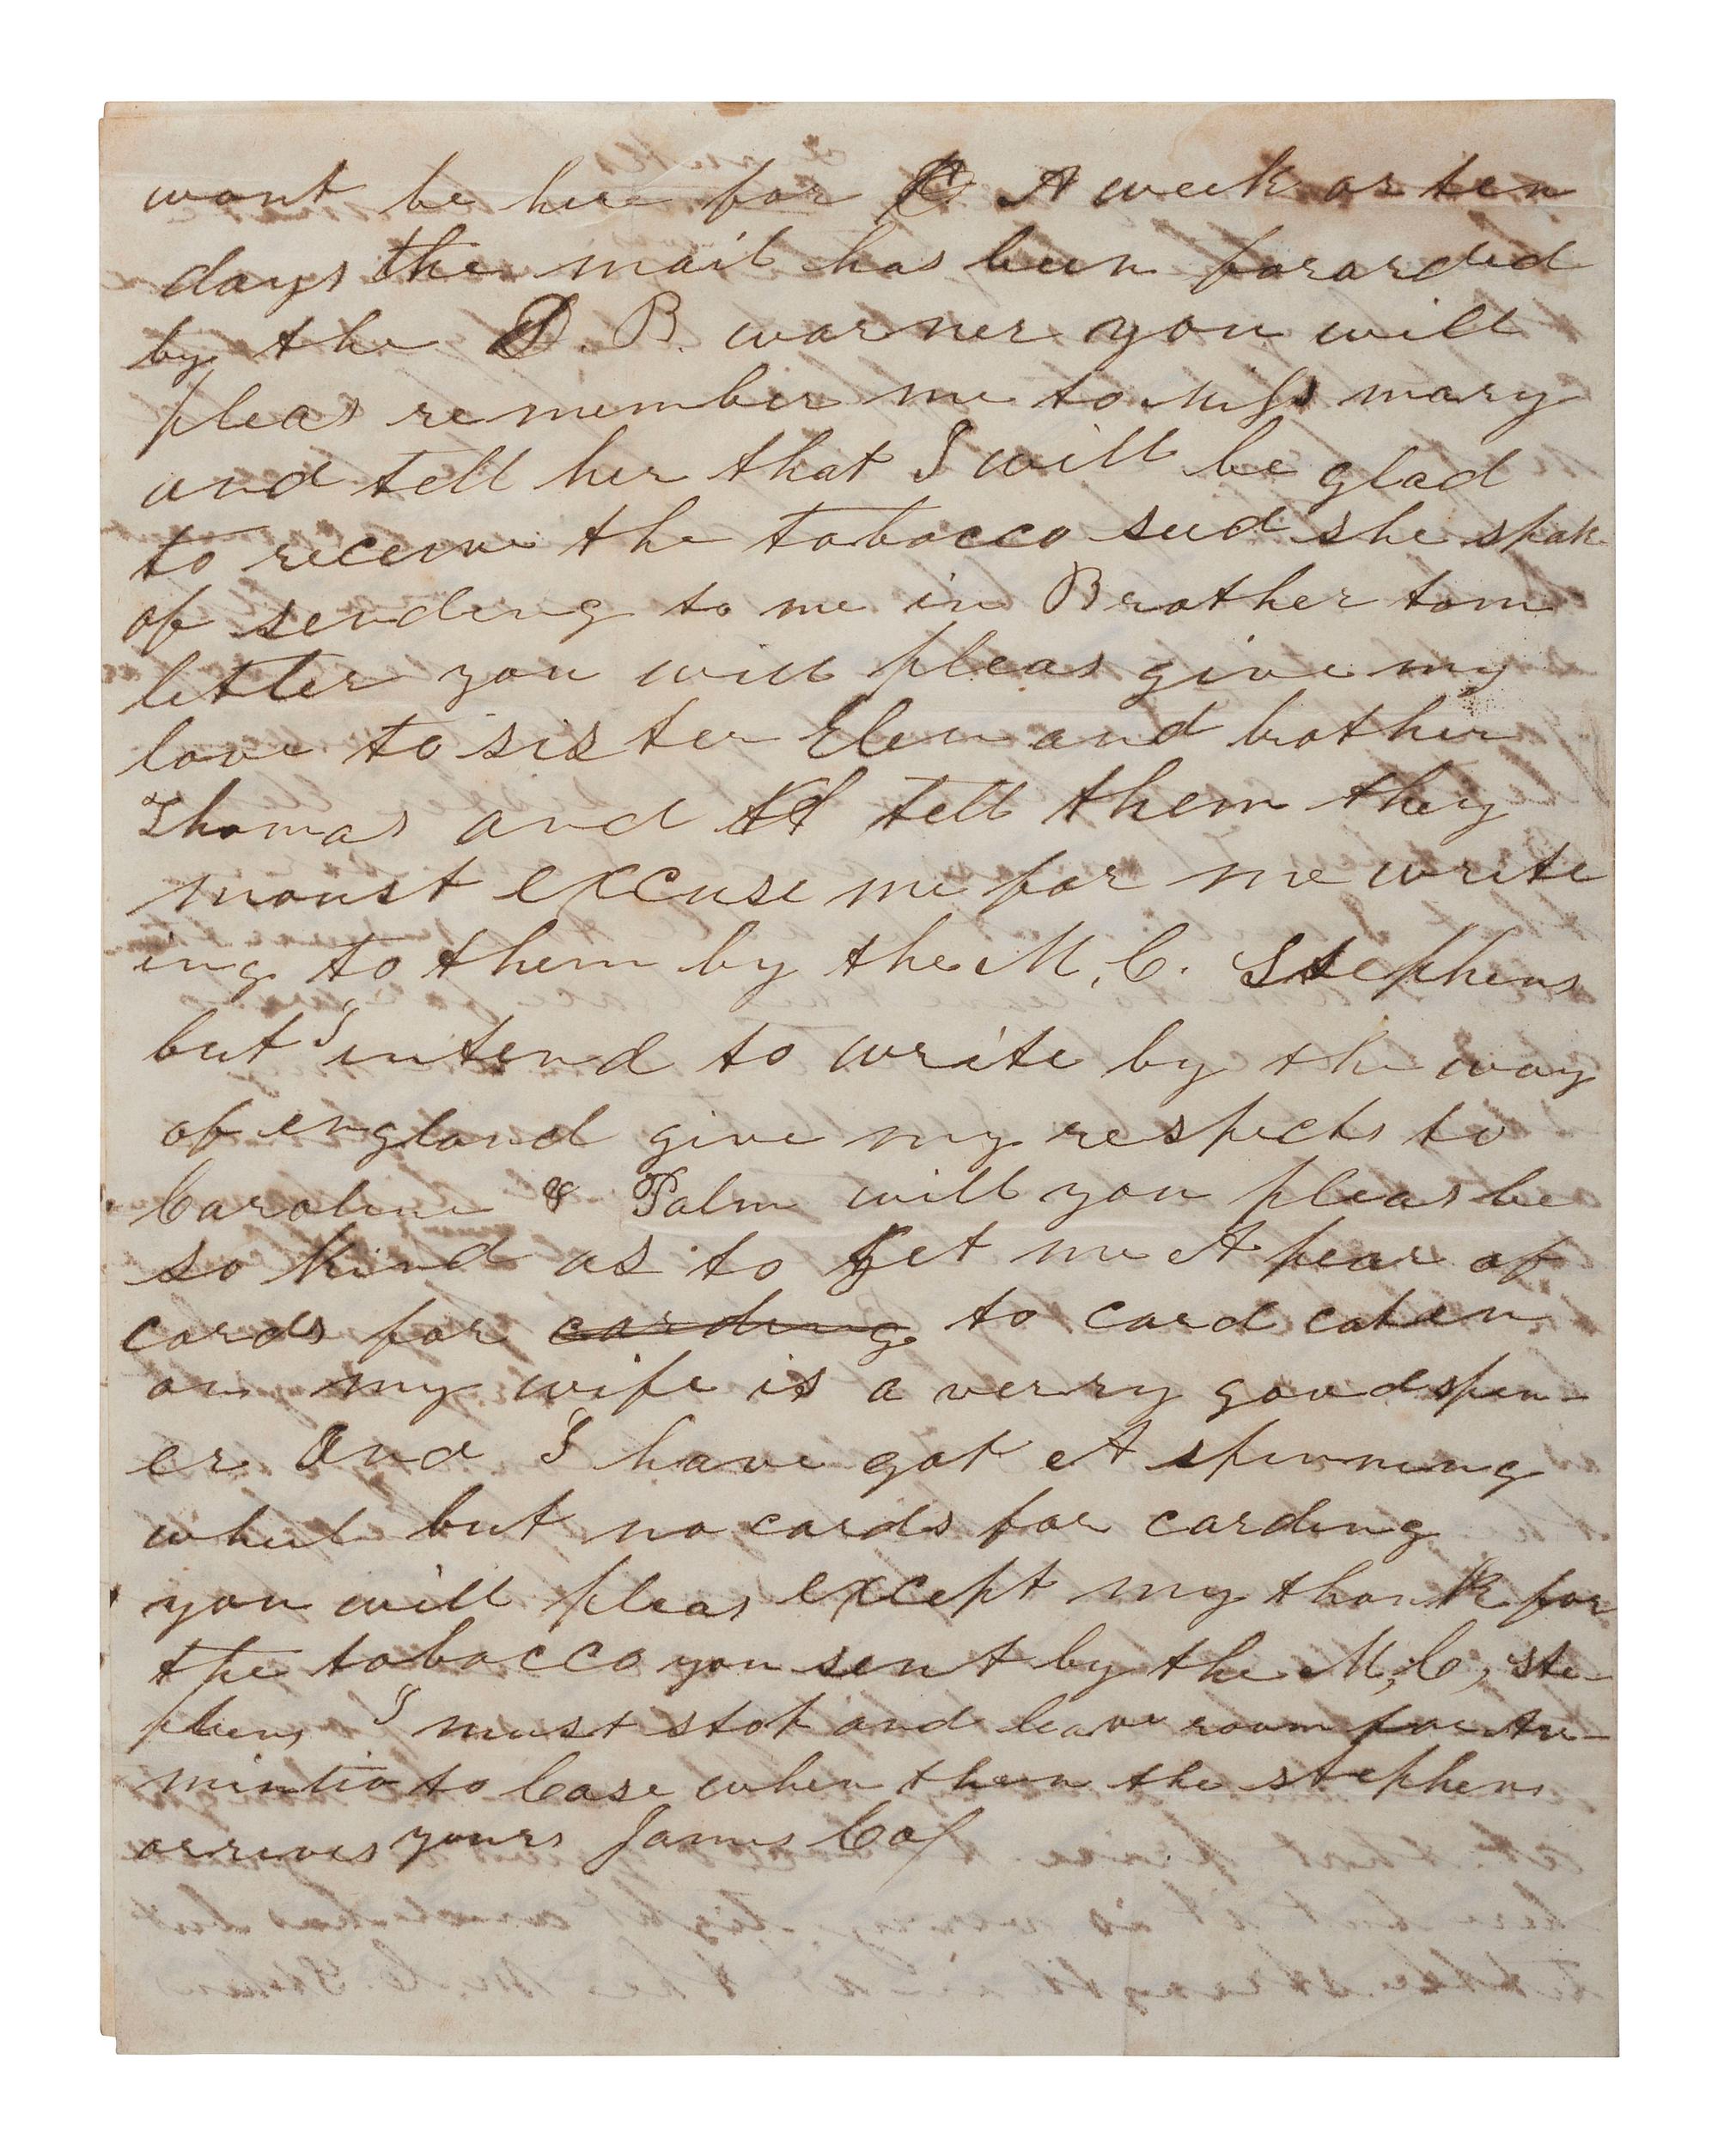 wont be here for A week or ten
days the mail has been forarded
by the D. B. warner you will
pleas remember me to Miss mary
and tell her that I will be glad
to receive the tobacco seed she spok
of sending to me in Brother tom
letter you will pleas give my
love to sister Elen and brother
Thomas and tell them they
moust excuse me for me write
ing to them by the M. C. Stephens
but I intend to write by the way
of england give my respects to
Caroline & Palm will you pleas be
so kind as to get me A pear of
cards for carding to card coten
on my wife is a verry good spin-
er And I have got A spinning
wheel but no cards for carding
you will pleas except my thank for
the tobacco you sent by the M, C, Ste-
phens I must stop and leave room for Ar-
mintio to Case when the stephens
arrives yours James Cof